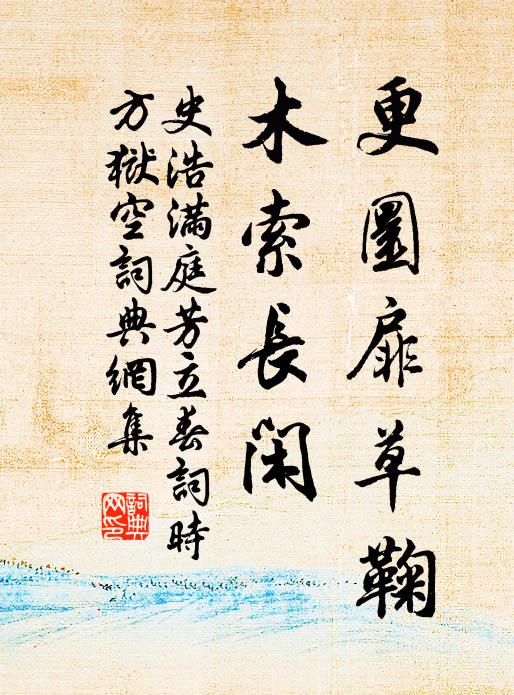 更圜扉草鞠
木索長閑
史浩滿庭芳立春詞時
方獄空詞典網集
詞典
网印